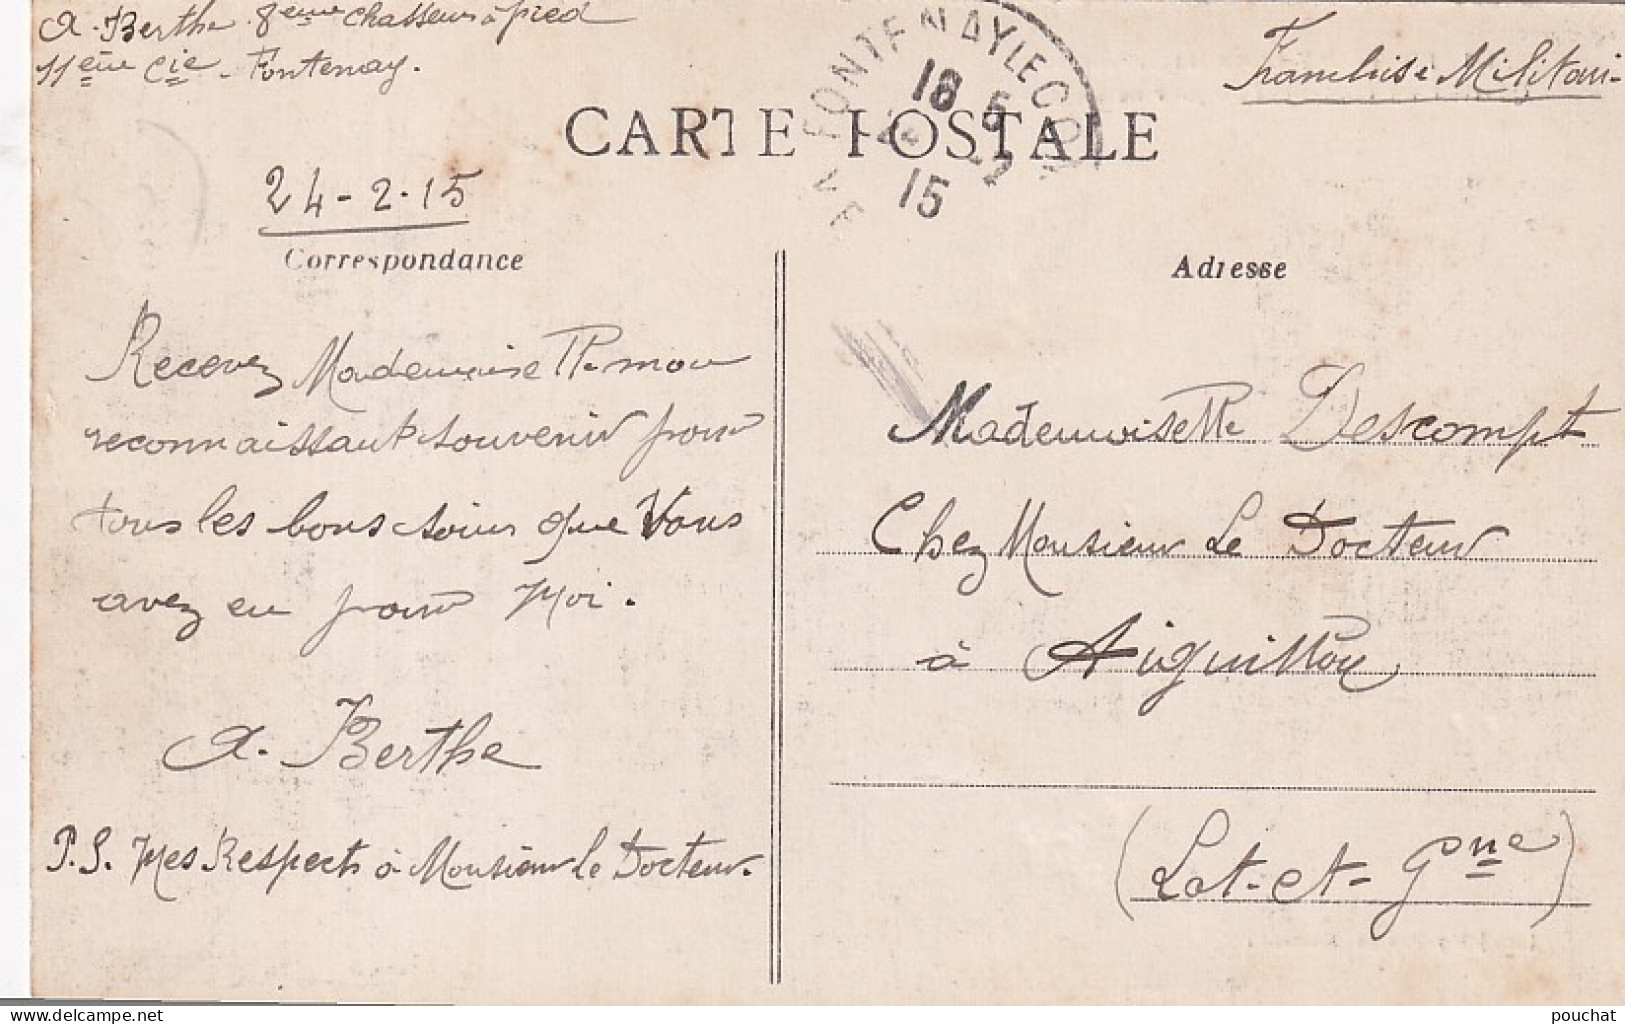 A. Berthe 8eme chasseurs à pied
11ème Cie - Fontenay.
Franchise Militari-
FONTENAY LE CO
VENDÉE
18 5
2
15
CARTE POSTALE
24-2.15
Correspondance
Adresse
Recevez Mademoiselle mon
reconnaissant souvenir pour
tous les bons soins que Vous
avez eu pour Moi.
A. Berthe
P.S. Mes Respects à Monsieur le Docteur.
Mademoiselle Descompt
Chez Monsieur Le Docteur
à Aiguillon
(Lot-et-Gnne)
delcampe.net
pouchat